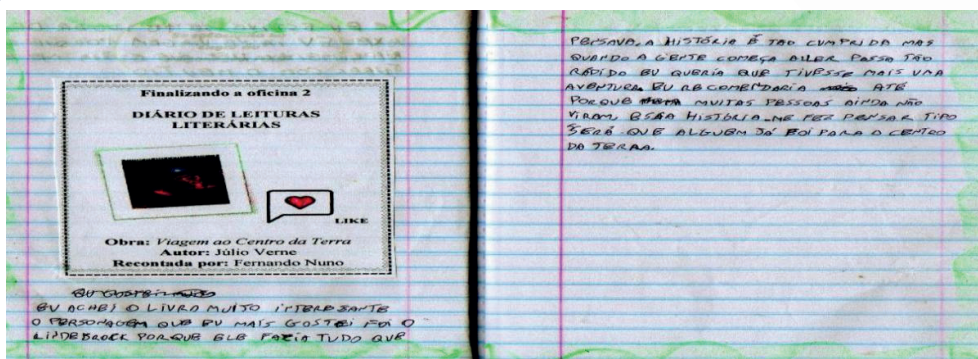 Finalizando a oficina 2
DIÁRIO DE LEITURAS
LITERÁRIAS
LIKE
Obra: Viagem ao Centro da Terra
Autor: Júlio Verne
Recontada por: Fernando Nuno
EU ACHEI O LIVRO MUITO INTERESANTE
O PERSONAGEM QUE EU MAIS GOSTEI FOI O
LIDEBROCK PORQUE ELE FAZIA TUDO QUE
PENSAVA, A HISTÓRIA É TAO CUMPRIDA MAS
QUANDO A GENTE COMEÇA A LER PASSA TÃO
RÁPIDO EU QUERIA QUE TIVESSE MAIS UMA
AVENTURA EU RECOMENDARIA ATÉ
PORQUE MUITAS PESSOAS AINDA NÃO
VIRAM, ESSA HISTÓRIA ME FEZ PENSAR TIPO
SERÁ QUE ALGUEM JÁ FOI PARA O CENTRO
DA TERRA.